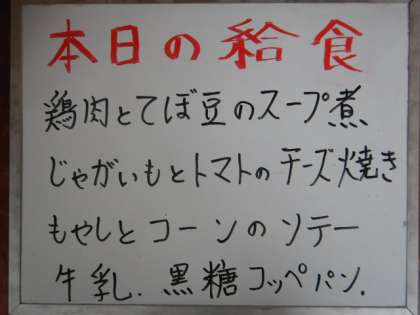 本日の給食
鶏肉とてぼ豆のスープ煮
じゃがいもとトマトのチーズ焼き
もやしとコーンのソテー
牛乳.黒糖コッペパン.